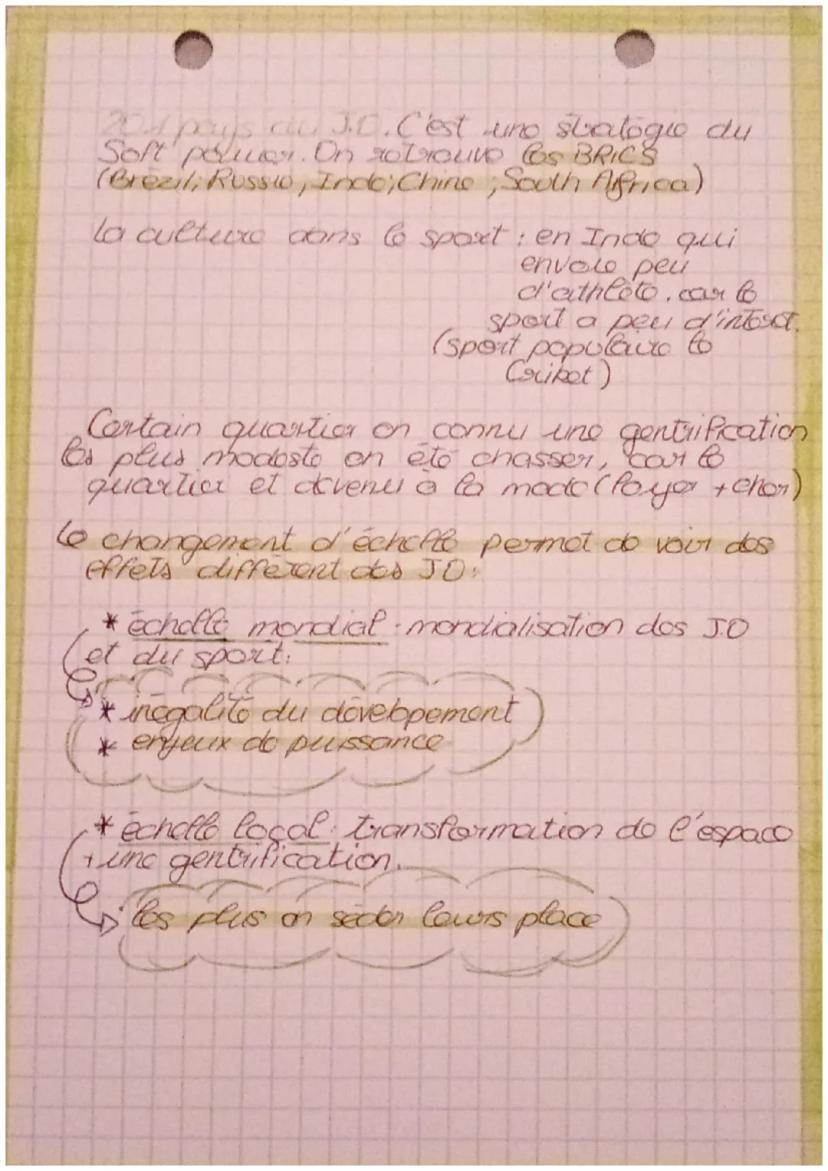 204 pays du J.O. C'est une stratégie du
Soft power. On retrouve les BRICS
(Brezil; Russie, Inde; Chine ; South Africa)
la culture dans le sport : en Inde qui
envoie peu
d'athlète. car le
sport a peu d'interet.
(sport populaire le
Criket)
Certain quartier on connu une gentrification
les plus modeste on été chasser, car le
quartier et devenu à la mode (loyer + cher)
le changement d'échelle permet de voir des
effets différent des JO:
* échelle mondial : mondialisation des J.O
et du sport:
* inégalité du dévelopement
* enjeux de puissance
* échelle local : transformation de l'espace
+ une gentrification.
les plus on séder leurs place